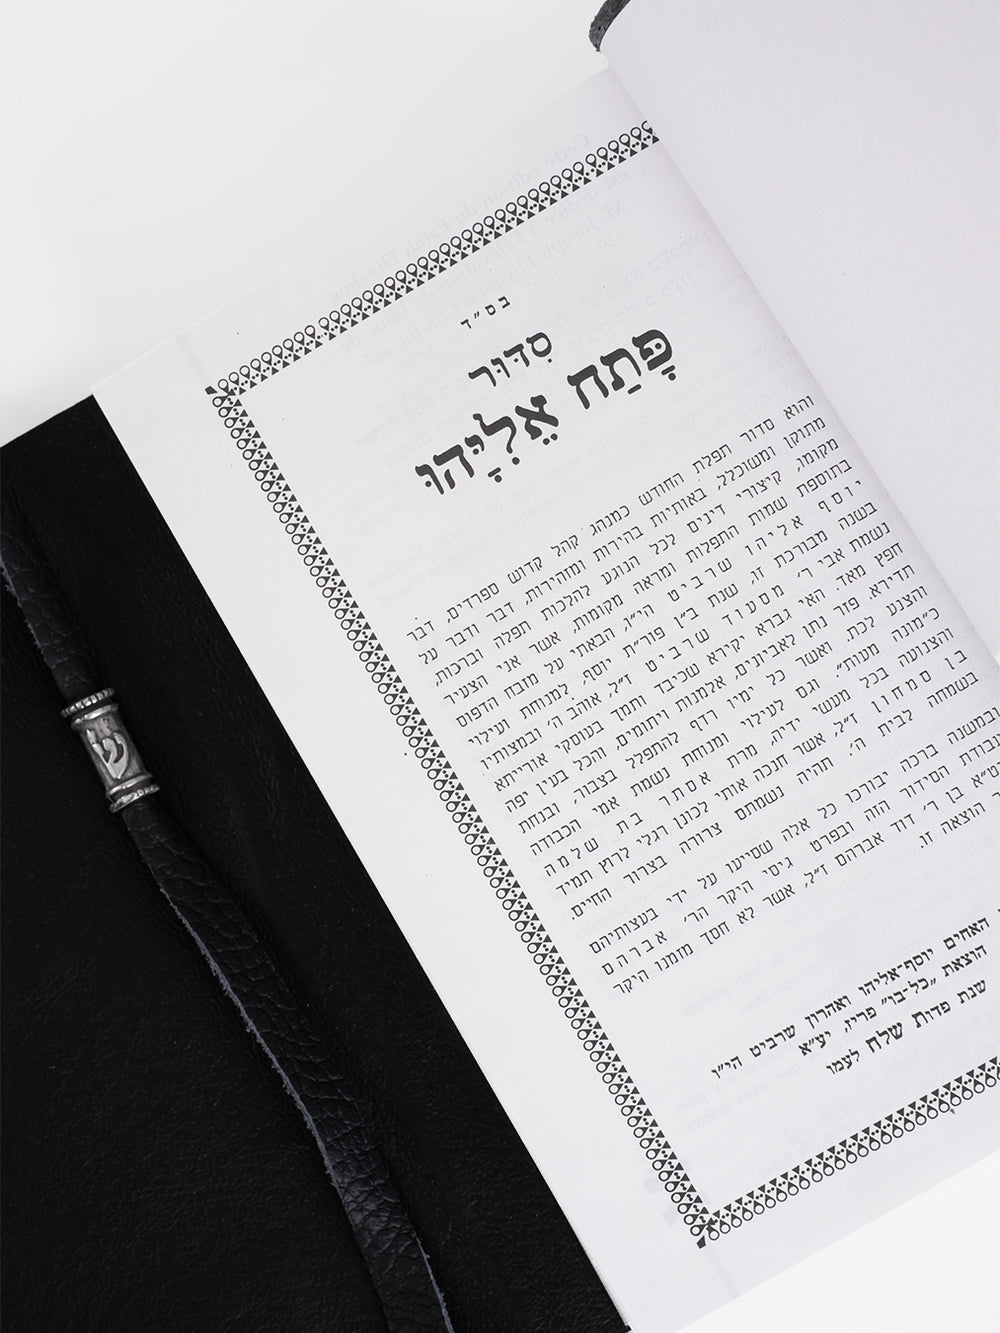 בס"ד
סִדּוּר
פָּתַח אֵלִיָּהוּ
והוא סדור תפלת החודש כמנהג קהל קדוש ספרדים, דבר
מתוקן ומשוכלל, באותיות בהירות ומזהירות, דבר ודבר על
מקומו, קיצורי דינים לכל הנוגע להלכות תפלה וברכות,
בתוספת שמות התפלות ומראה מקומות, אשר אני הצעיר
יוסף אליהו שרביט הי"ו, הבאתי על מזבח הדפוס
בשנה מבורכת זו, שנת ב"ן פור"ת יוסף, למנוחת ועילוי
נשמת אבי ר' מסעוד שרביט ז"ל, אוהב ה' ובמצותיו
חפץ מאד. האי גברא יקירא שכיבד ותמך בעוסקי אורייתא
תדירא, פזר נתן לאביונים, אלמנות ויתומים, והכל בעין יפה
והצנע לכת. ואשר כל ימיו רדף להתפלל בצבור, ובנחת
כ"מונה מעות". וגם לעילוי ומנוחת נשמת אמי הכבודה
והצנועה בכל מעשי ידיה, מרת אסתר בת שלמה
בן סמחון ז"ל, אשר חנכה אותי לכונן רגלי לרוץ תמיד
בשמחה לבית ה'. תהיה נשמתם צרורה בצרור החיים.
ובמשנה ברכה יבורכו כל אלה שסייעו על ידי בעצותיהם
הסידור הזה ובפרט גיסי היקר הר' אברהם
בן ר' דוד אברהם ז"ל, אשר לא חסך מזמנו היקר
הוצאה זו.
האחים יוסף-אליהו ואהרון שרביט הי"ו
הוצאת "כל-בו" פריז, יע"א
שנת פדות שלח לעמו
ש